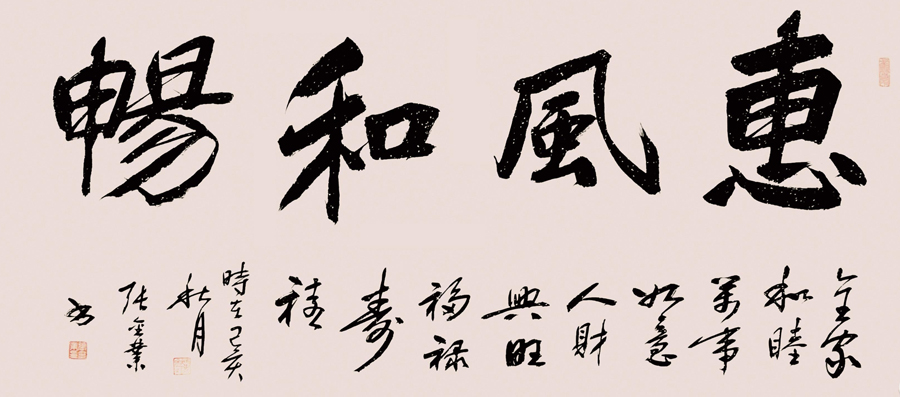 惠風和暢
全家
和睦
萬事
如意
人財
興旺
福禄
壽
禧
時在己亥
秋月
张金業
书